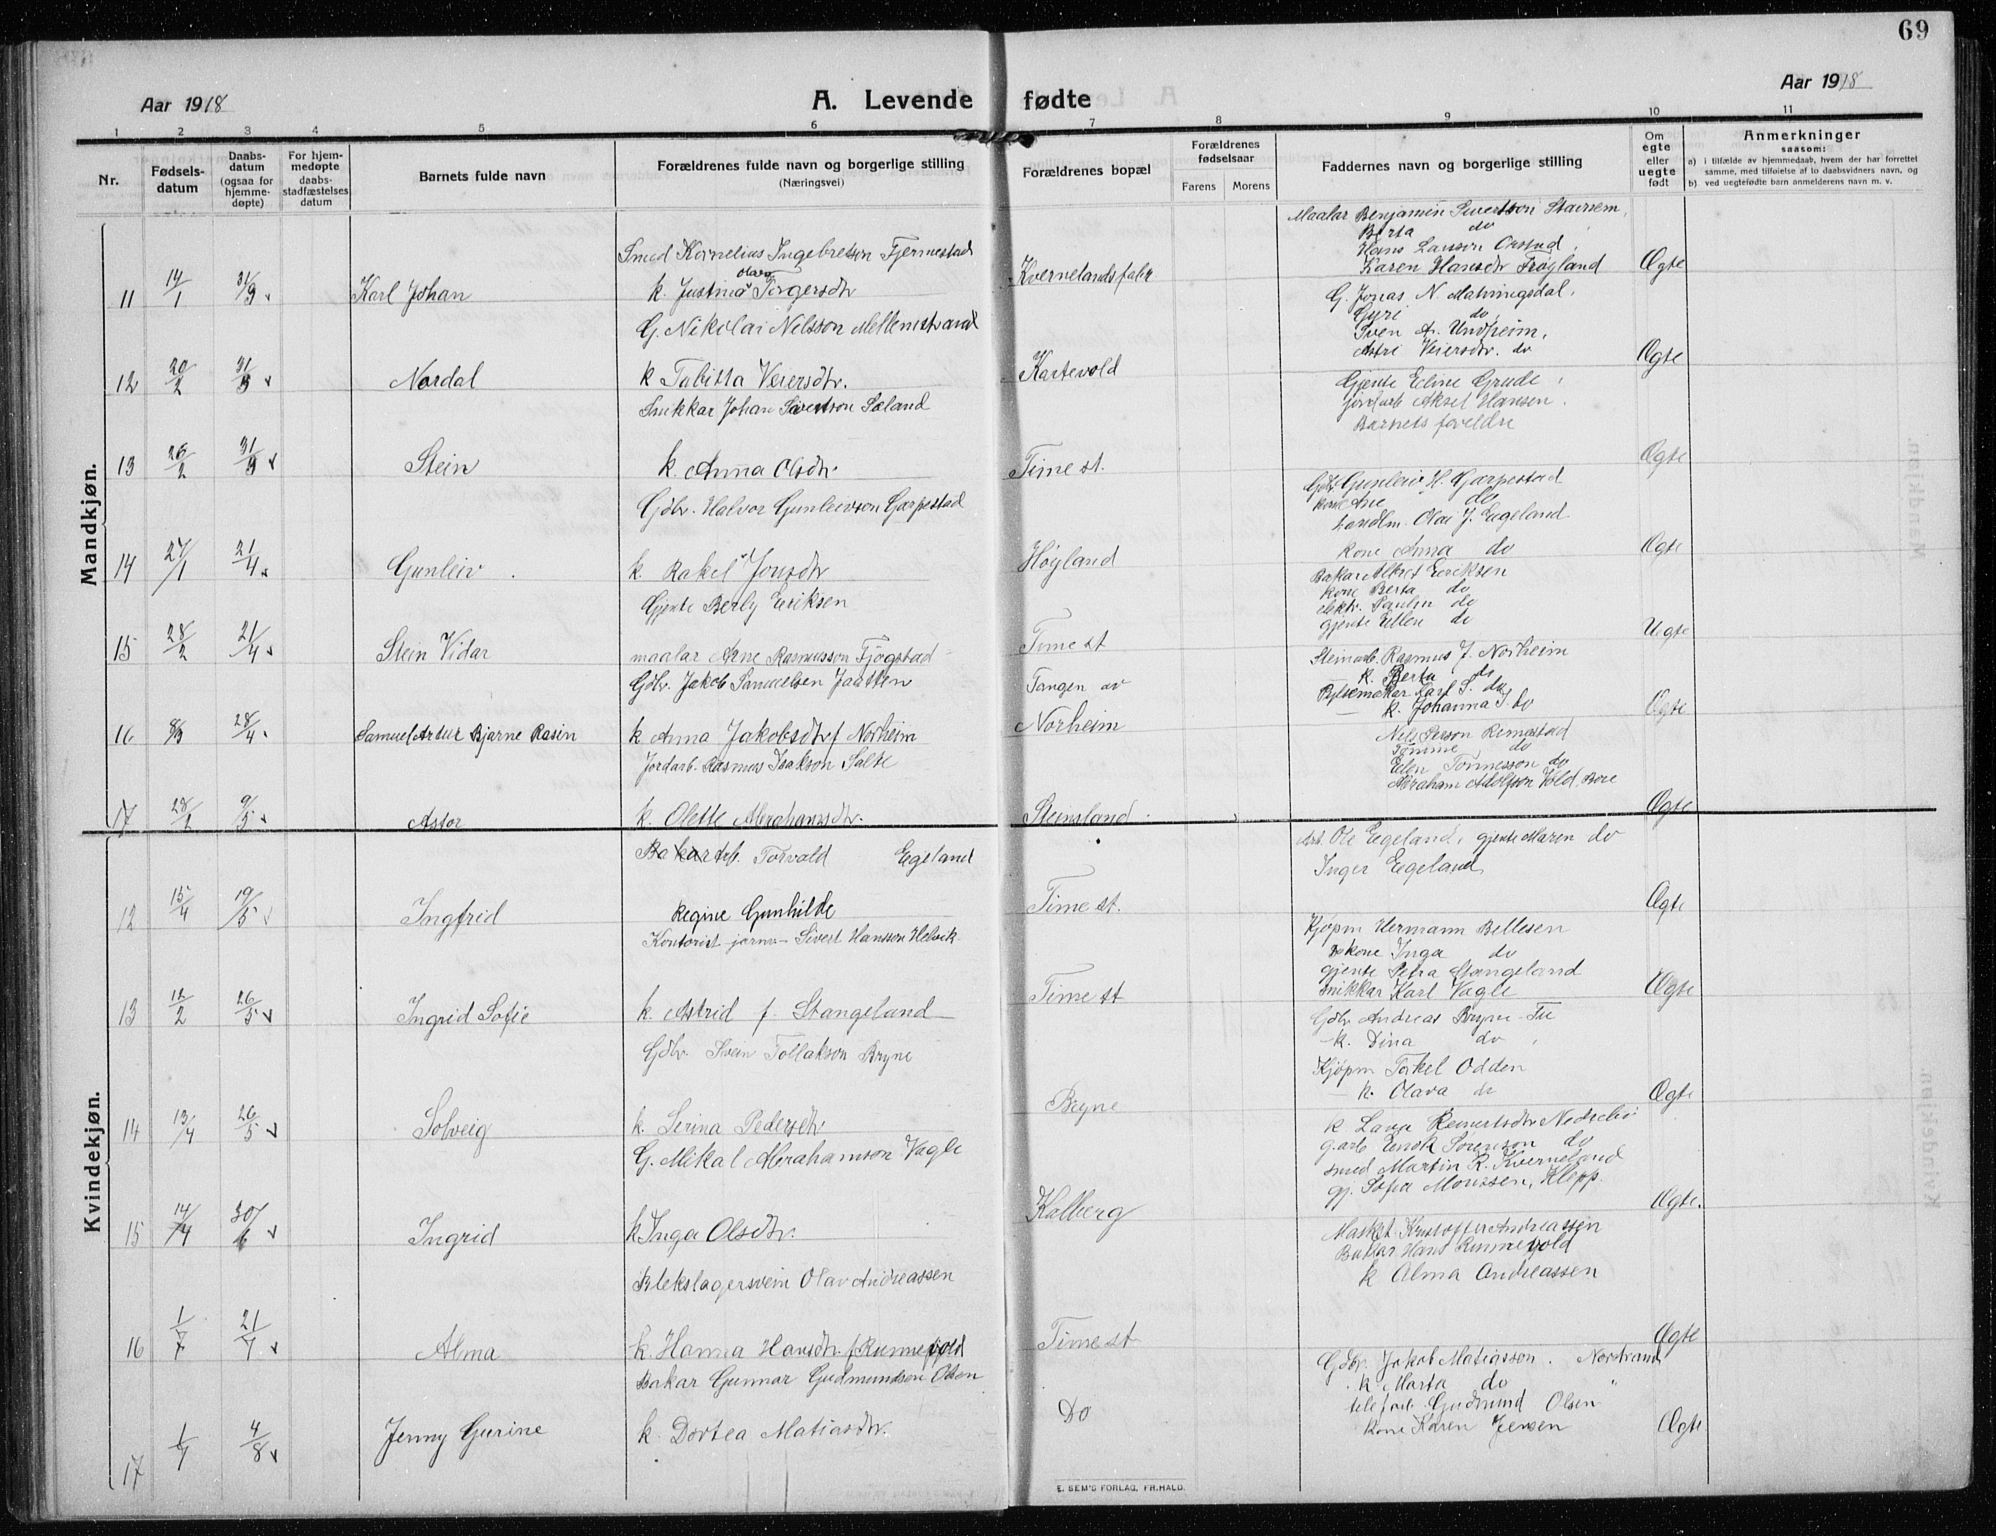 69
Aar 1918
A. Levende fødte
Aar 1918
1 2 3 4 5 6 7 8 9 10 11
Nr.
Fødsels-
datum
Daabs-
datum
(ogsaa for
hjemme-
døpte)
For hjem-
medøpte
daabs-
stadfæstelses
datum
Barnets fulde navn
Forældrenes fulde navn og borgerlige stilling
(Næringsvei)
Forældrenes bopæl
Forældrenes
fødselsaar
Farens Morens
Faddernes navn og borgerlige stilling
Om
egte
eller
uegte
født
Anmerkninger
saasom:
a) i tilfælde av hjemmedaab, hvem der har forrettet
samme, med tilføielse af to daabsvidners navn, og
b) ved uegtefødte barn anmelderens navn m. v.
Mandkjøn.
11 14/1 31/3 Karl Johan
Smed Kornelius Ingebretson Fjermestad
k. Justina Olava Torgersdtr
Kvernelandsfabr
Maalar Benjamin Sivertson Stavnem,
Berta do
Hans Larsson Orstad,
Karen Hansdtr Frøyland
Ægte
12 20/2 31/3 Nordal
G. Nikolai Nilsson Mellemstrand
k Tabitta Veiersdtr.
Kartevold
G. Jonas N. Matningsdal,
Guri do,
Sven A. Undheim,
Astri Veiersdtr. do
Ægte
13 26/2 31/3 Stein
Snikkar Johan Sivertson Sæland
k. Anna Olsdtr
Time st.
Gjente Eline Grude,
Jordarb Aksel Hansen.
Barnets foreldre
Ægte
14 27/1 21/4 Gunleiv
Gdbr. Halvor Gunleivson Garpestad
k. Rakel Jonsdtr
Høgland
Gdbr. Gunleiv H. Garpestad
kone Ane do
Landhm. Olai J. Eegeland
Kone Anna do
Ægte
15 28/2 21/4 Stein Vidar
Gjente Berly Eriksen
maalar Arne Rasmusson Fjogstad
Time st
Bakar Alfret Eeriksen
kone Berta do
elektr. Paulin do
gjente Ellen do
Uegte
16 8/3 28/4 Samuel Artur Bjarne Rasin
Gdbr. Jakob Samuelsen Jaatten
k Anna Jakobsdtr f Norheim
Tangen av
Norheim
Steinarb. Rasmus J. Norheim
k. Berta do
Pylsemakar Karl S. do
k. Johanna S. do
Ægte
17 28/2 9/5 Astor
Jordarb. Rasmus Isakson Salte
k. Olette Abrahamsdtr.
Steinsland
Nils Person Rimestad
Tomine do
Elen Tønnesson do
Abraham Adolfson Vold, Bore
Ægte
Kvindekjøn.
12 15/4 19/5 Ingfrid
Bakararb. Torvald Egeland
Regine Gunhilde
Time st.
Arb. Ole Egeland, gjente Maren do
Inger Eegeland
Ægte
13 12/2 26/5 Ingrid Sofie
Kontorist jarnv Sivert Hansson Helvik
k. Astrid f. Stangeland
Time st
Kjøpm Hermann Bellesen
kone Inga do
gjente Petra Stangeland
snikkar Karl Vagle
Ægte
14 13/4 26/5 Solveig
Gdbr. Svein Tollakson Bryne
k. Serina Pedersdtr
Bryne
Gdbr Andreas Bryne Tu
k. Dina do
Kjøpm Torkel Odden
k. Olava do
Ægte
15 14/4 30/6 Ingrid
G. Mikal Abrahamson Vagle
k Inga Olsdtr.
Kalberg
k Reinertsdtr Nedrebø
g.arb Enok Sørenson do
smed Martin R. Kverneland
gj. Sofia Monssen, Klepp.
Ægte.
16 1/7 21/7 Alma
Blekslagersvein Olav Andreassen
k. Hanna Hansdtr. f Runnevold
Time st
Maskst. Kristoffer Andreassen
Bakar Hans Runnevold
k Alma Andreassen
Ægte
17 1/7 4/8 Jenny Gurine
Bakar Gunnar Gudmundsen Olsen
k. Dortea Matiasdtr.
Do
Gdbr. Jakob Matiasson. Nordrand
k. Marta do
telefarb. Gudmund Olsen
Kone Karen Jensen
Ægte
E. SEM'S FORLAG, FR.HALD.